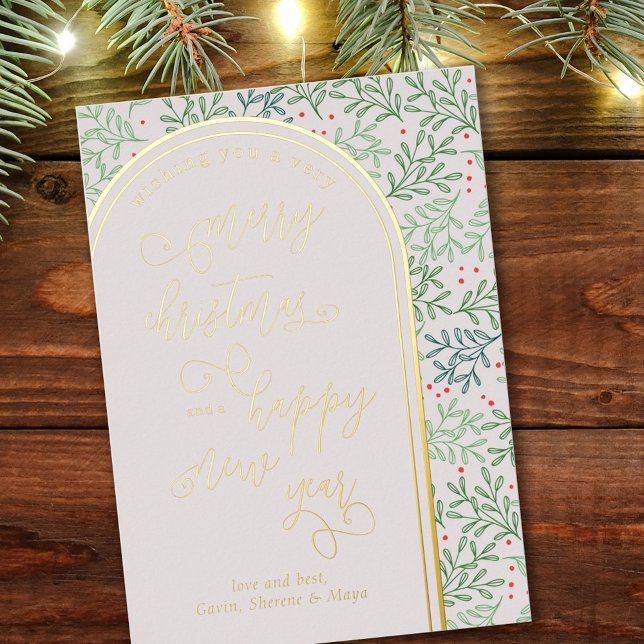 wishing you a very
merry
christmas
and a happy
new year
love and best,
Gavin, Sherene & Maya